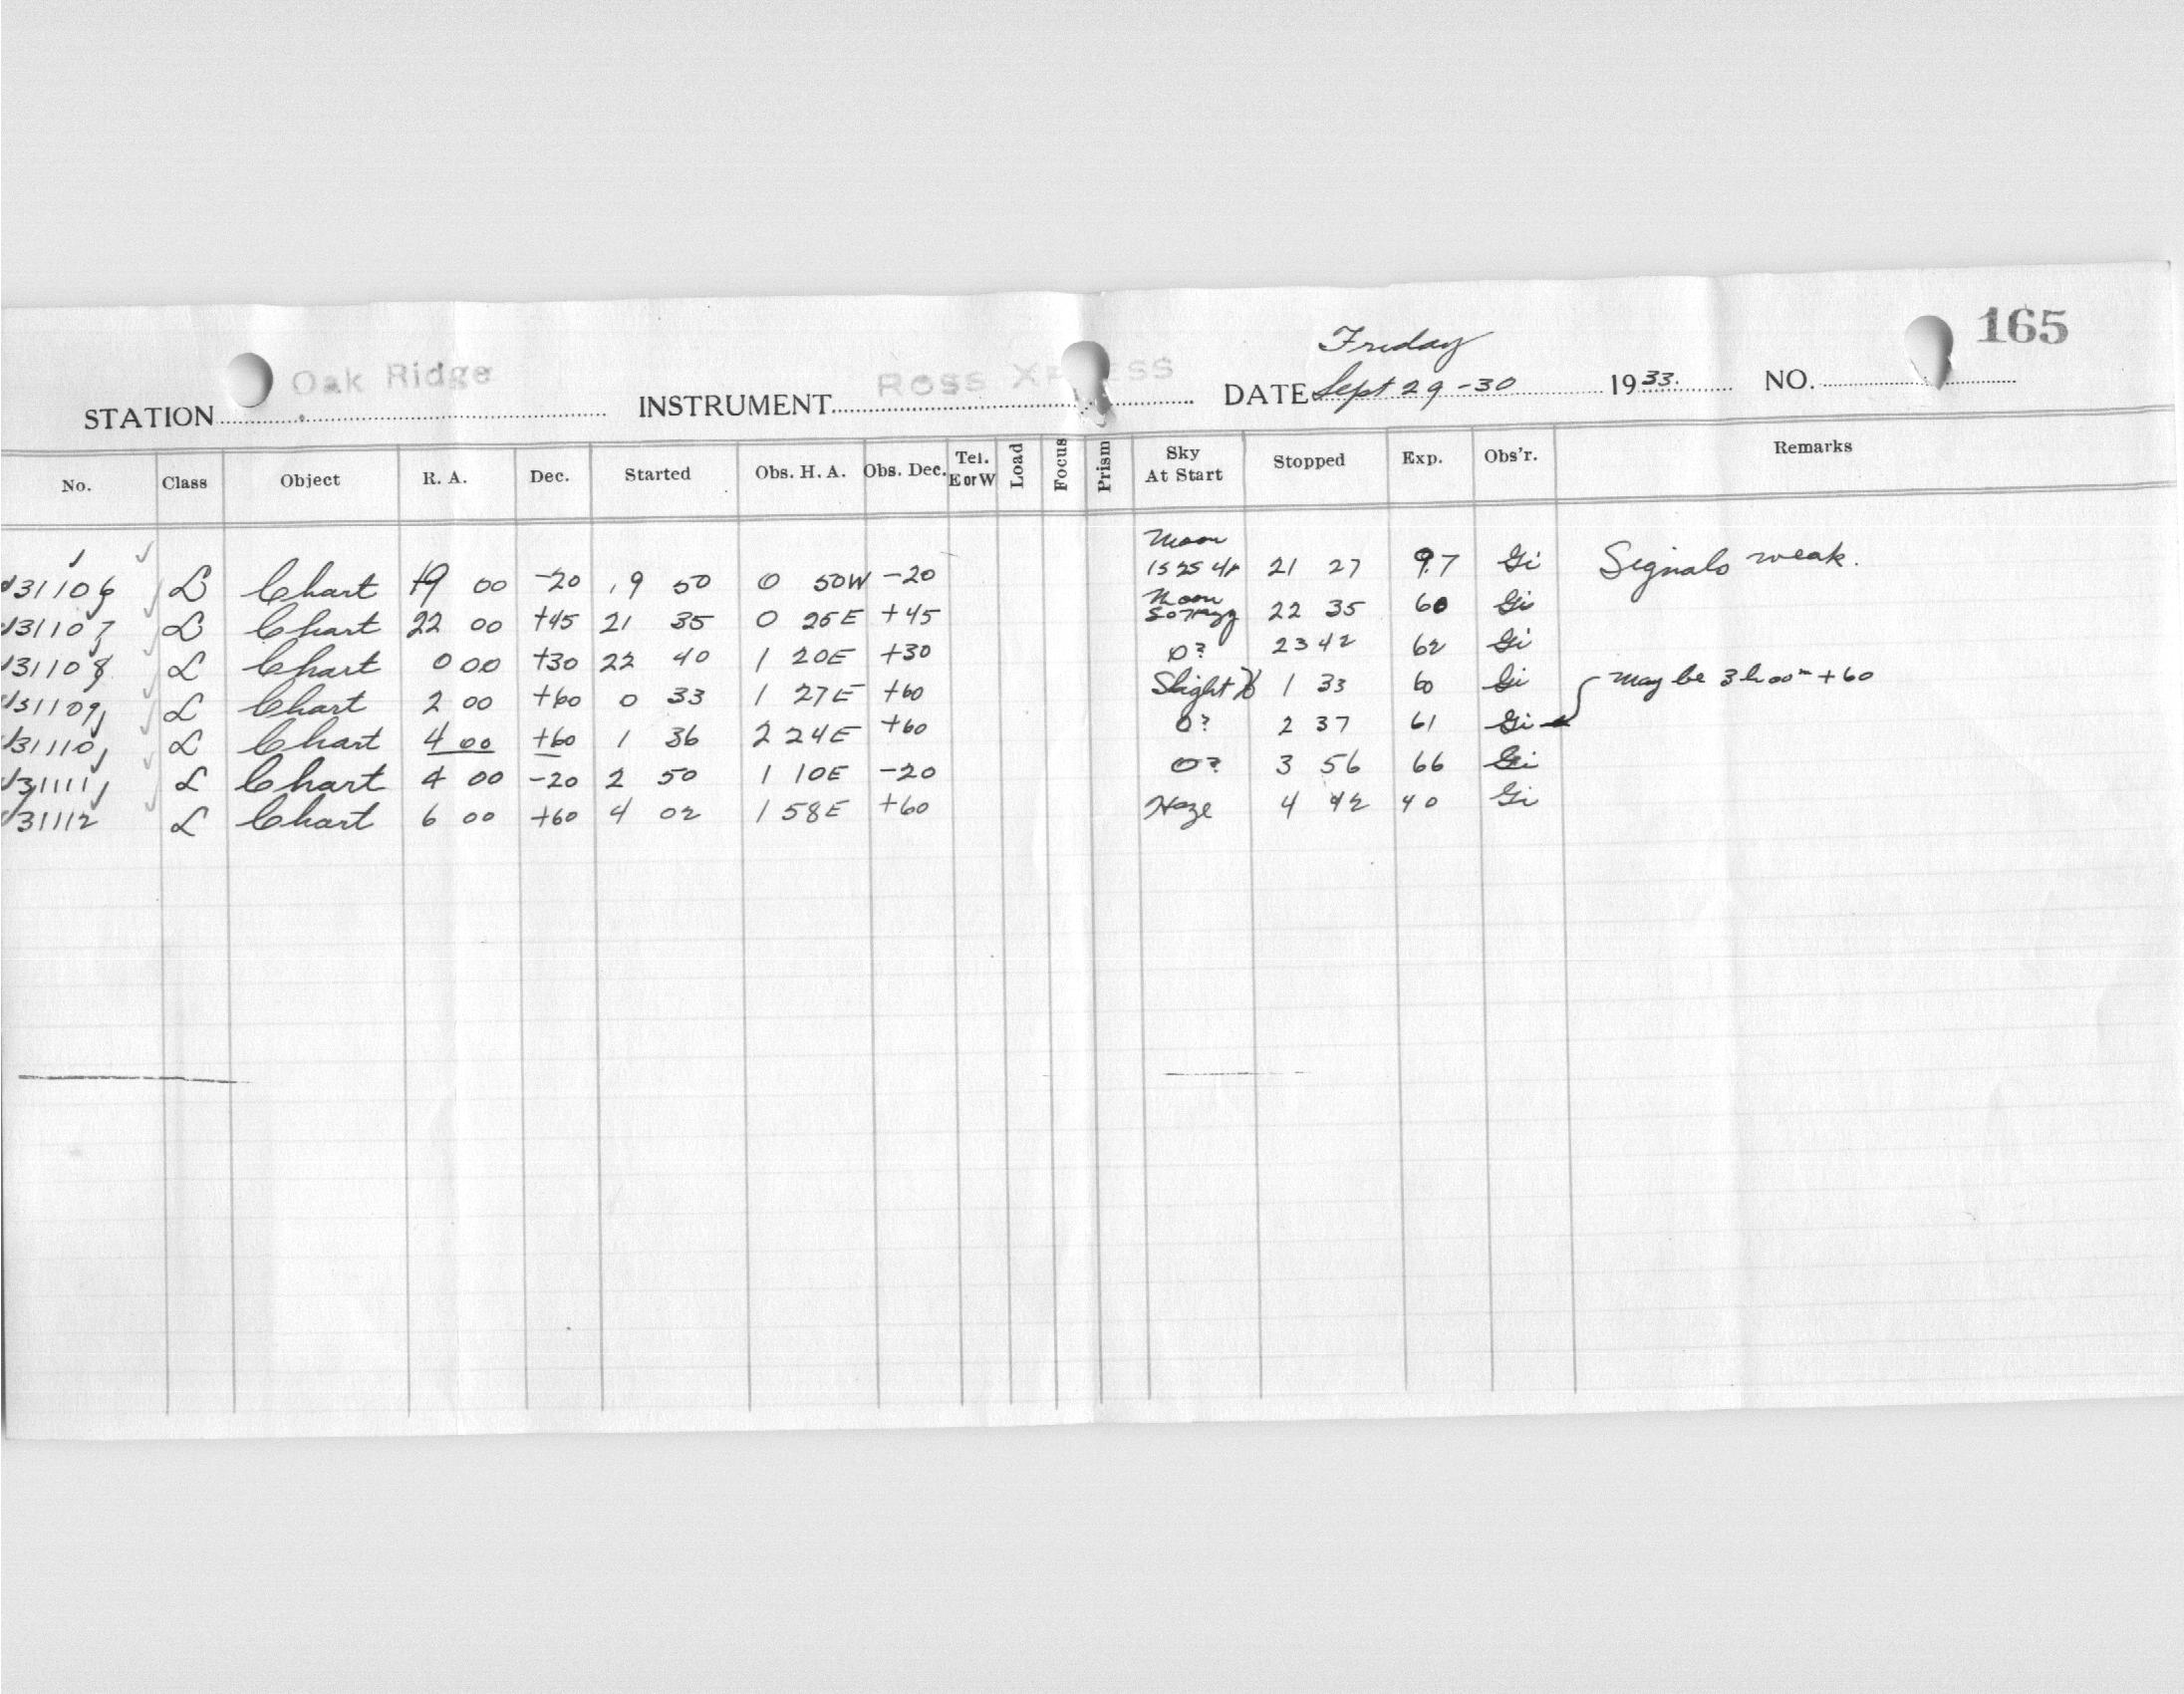 165
Friday
Oak Ridge
STATION INSTRUMENT DATE Sept 29-30 1933. NO.
No. Class Object R. A. Dec. Started Obs. H. A. Obs. Dec. Tel. E or W Load Focus Prism Sky At Start Stopped Exp. Obs'r. Remarks
Moon
31106 L Chart 19 00 -20 19 50 0 50W -20 21 27 97 Gi Signals weak.
Moon
31107 L Chart 22 00 +45 21 35 0 25E +45 22 35 60 Gi
31108 L Chart 0 00 +30 22 40 1 20E +30 0? 23 42 62 Gi
31109 L Chart 2 00 +60 0 33 1 27E +60 Slight 1 33 60 Gi may be 3h00m +60
31110 L Chart 4 00 +60 1 36 2 24E +60 0? 2 37 61 Gi
31111 L Chart 4 00 -20 2 50 1 10E -20 0? 3 56 66 Gi
31112 L Chart 6 00 +60 4 02 1 58E +60 Haze 4 42 40 Gi